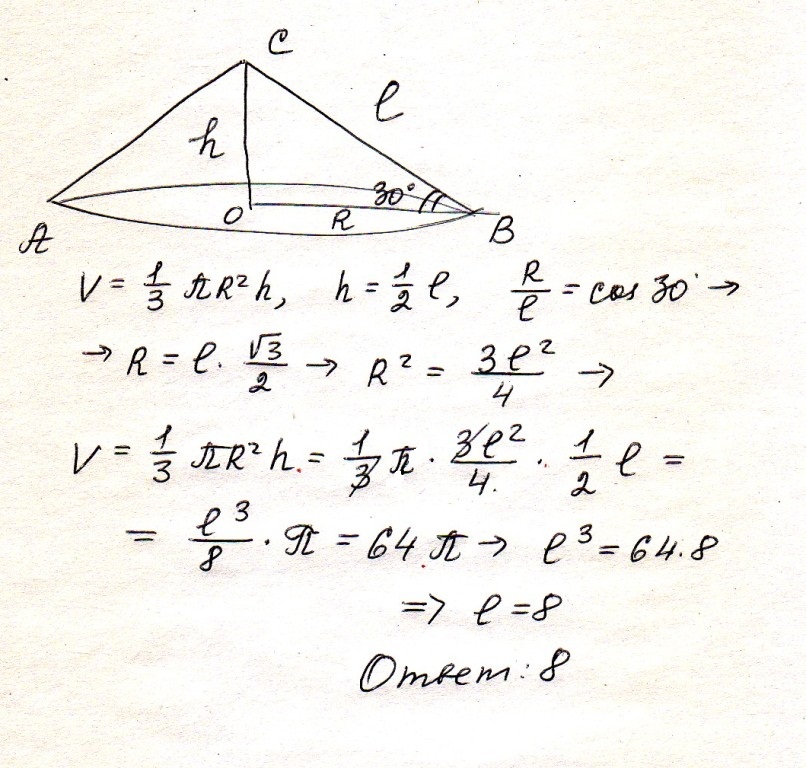 C
ℓ
h
30°
A
O
R
B
V = 1/3 πR²h, h = 1/2 ℓ, R/ℓ = cos 30° →
→ R = ℓ · √3/2 → R² = 3ℓ²/4 →
V = 1/3 πR²h = 1/3 π · 3ℓ²/4 · 1/2 ℓ =
= ℓ³/8 · π = 64π → ℓ³ = 64·8
=> ℓ = 8
Ответ: 8